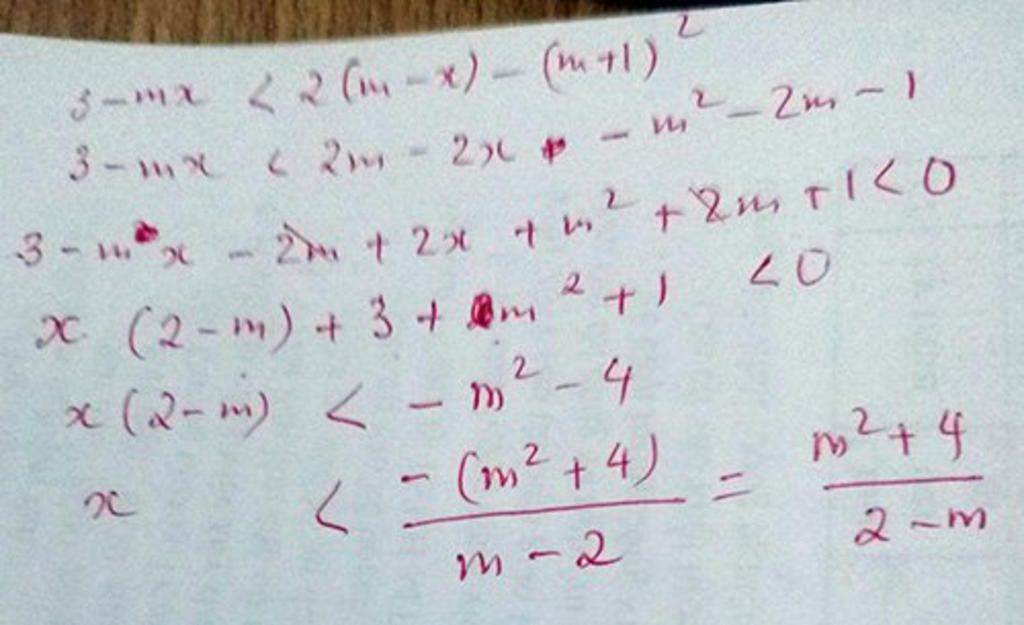 3 - mx < 2(m - x) - (m+1)²
3 - mx < 2m - 2x - m² - 2m - 1
3 - mx - 2m + 2x + m² + 2m + 1 < 0
x (2 - m) + 3 + m² + 1 < 0
x (2 - m) < - m² - 4
x < \frac{- (m² + 4)}{m - 2} = \frac{m² + 4}{2 - m}